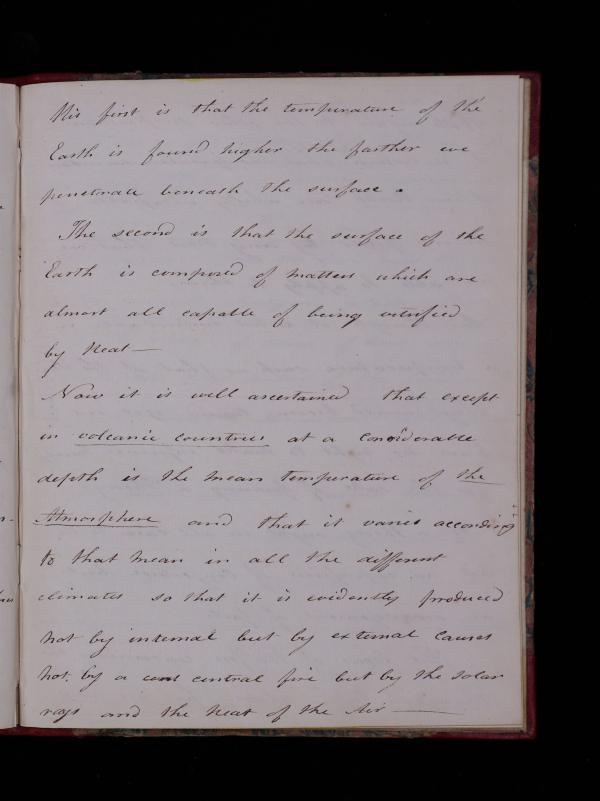 His first is that the temperature of the
Earth is found higher the farther we
penetrate beneath the surface.
The second is that the surface of the
Earth is composed of matters which are
almost all capable of being vitrified
by Heat —
Now it is well ascertained that except
in volcanic countries at a considerable
depth is the mean temperature of the
Atmosphere and that it varies according
to that mean in all the different
climates so that it is evidently produced
not by internal but by external causes
not by a cent central fire but by the solar
rays and the heat of the Air —